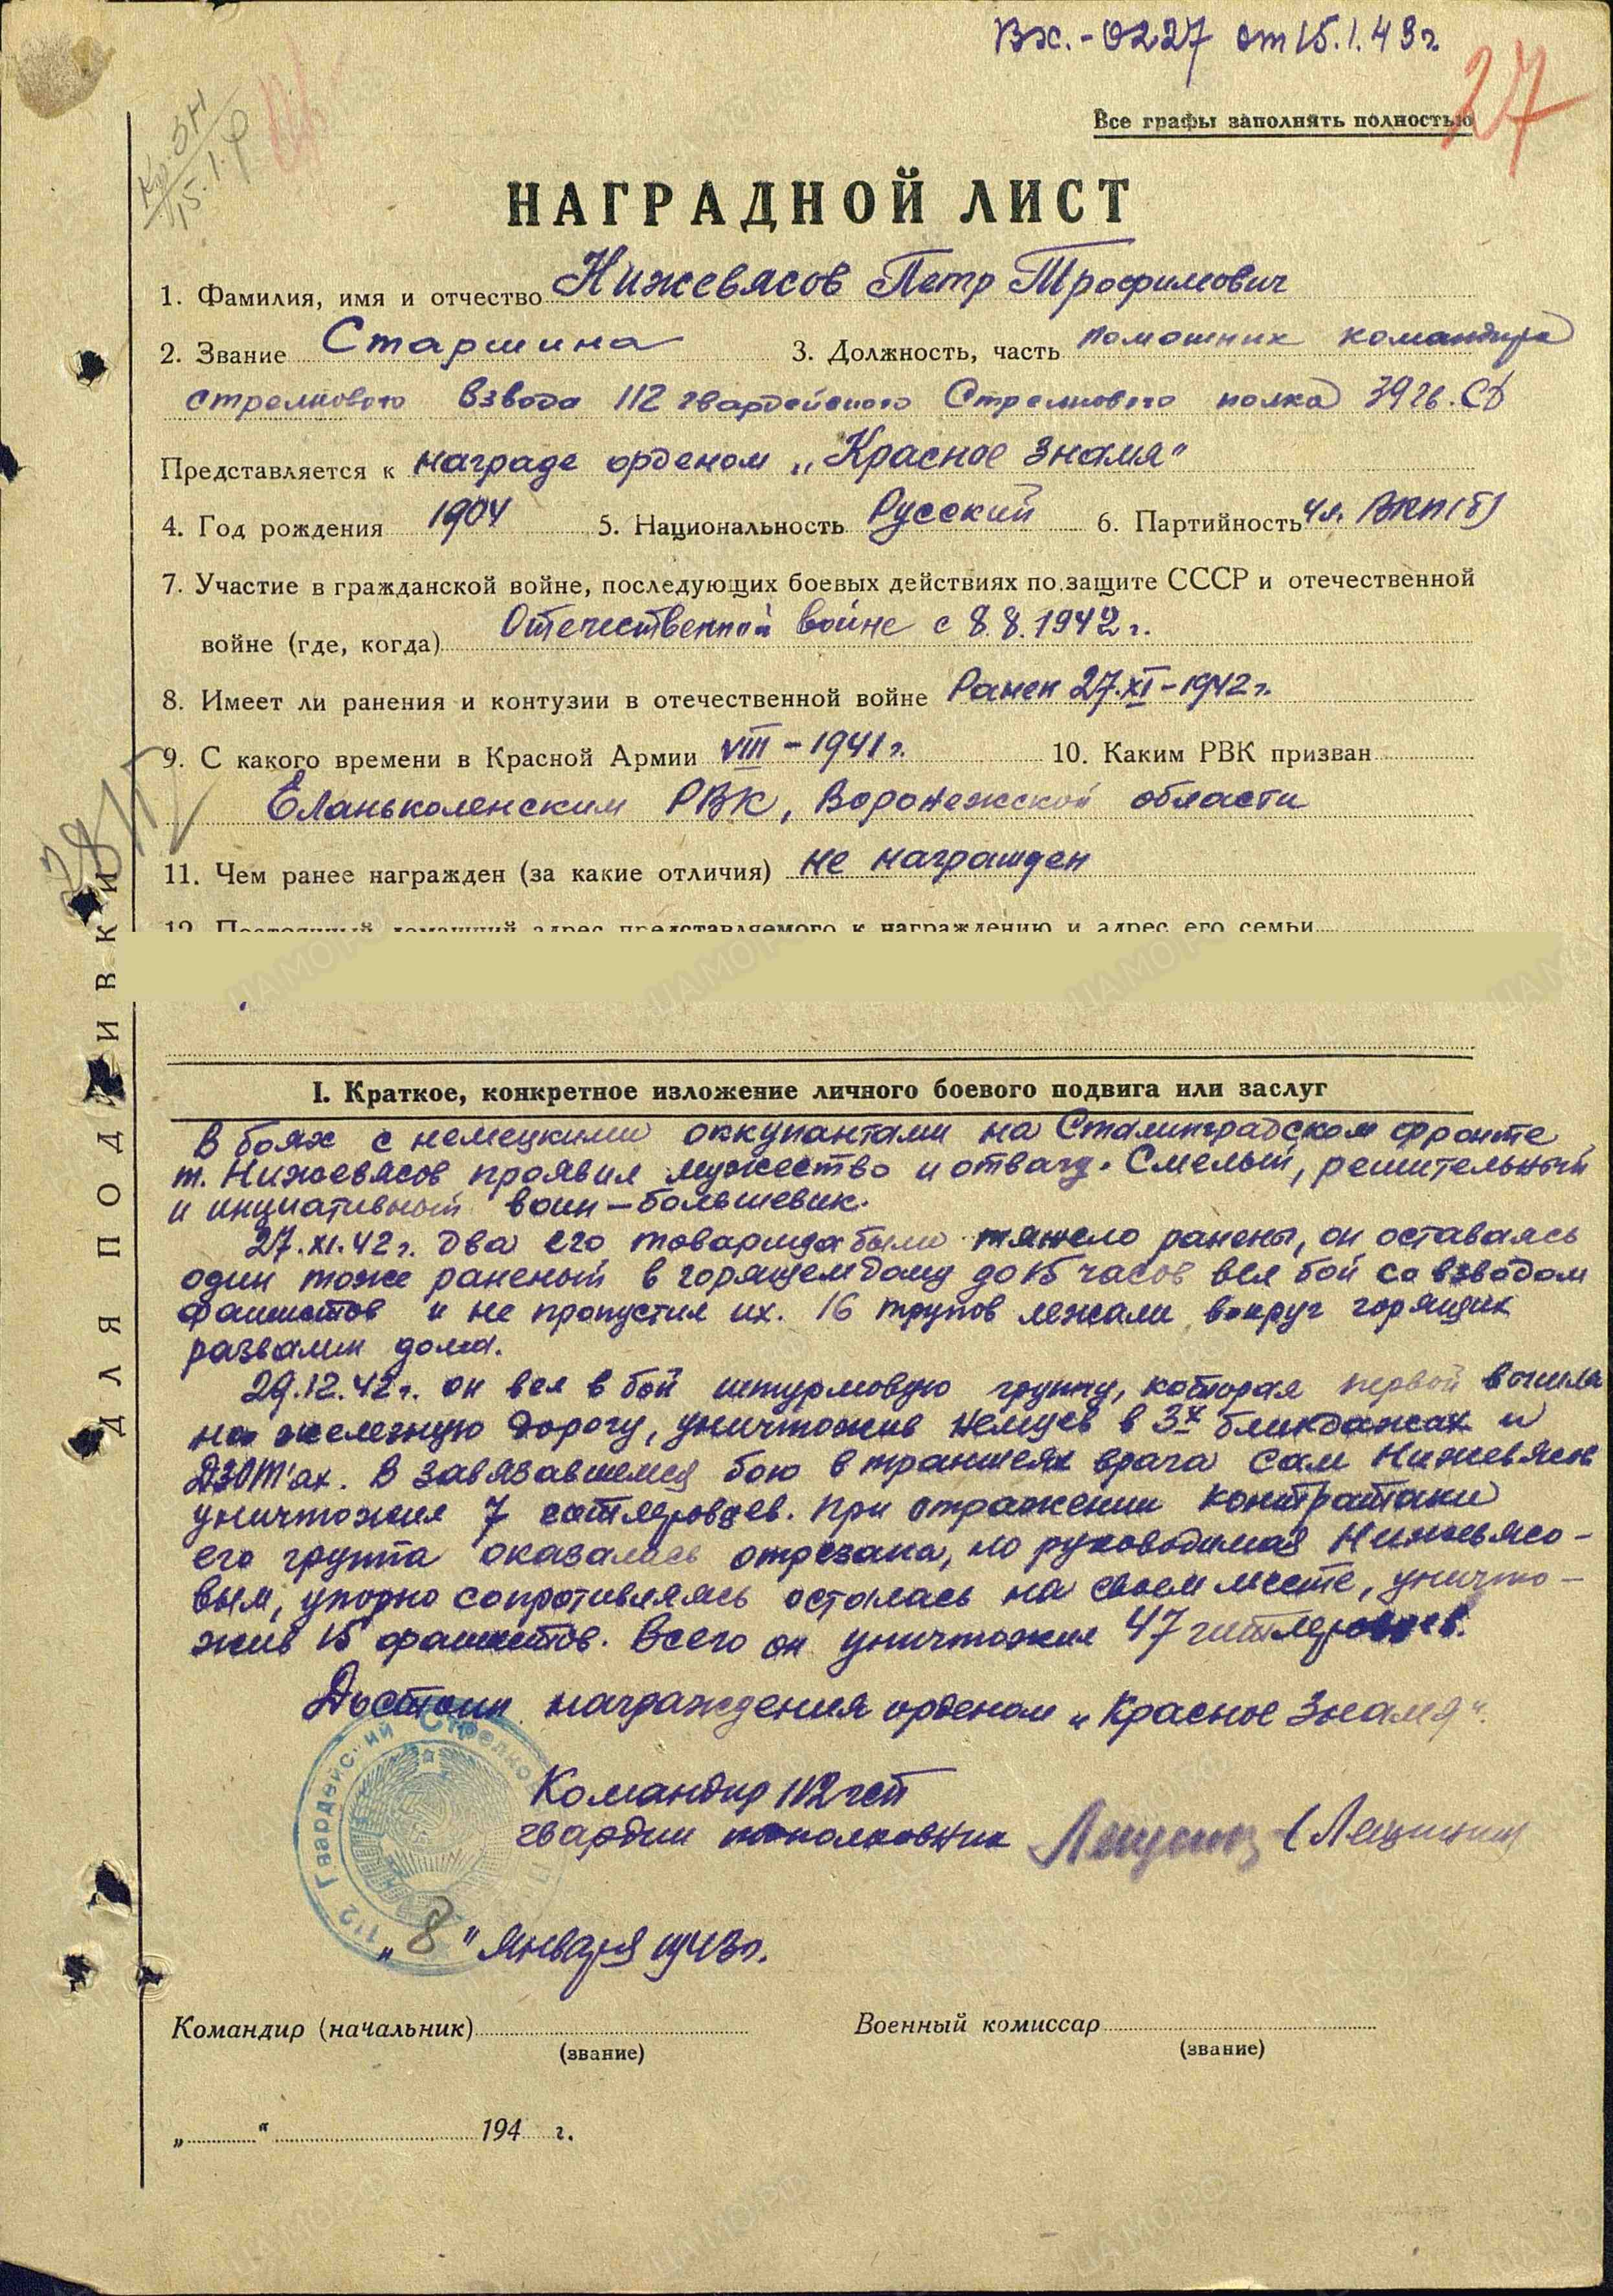 Вх.-0227 от 15.1.43г.
27
Все графы заполнять полностью
НАГРАДНОЙ ЛИСТ
1. Фамилия, имя и отчество Нижевясов Петр Трофимович
2. Звание Старшина 3. Должность, часть помошник командира
стрелкового взвода 112 гвардейского Стрелкового полка 39 гв. СД
Представляется к награде орденом „Красное Знамя"
4. Год рождения 1904 5. Национальность Русский 6. Партийность чл. ВКП(б)
7. Участие в гражданской войне, последующих боевых действиях по защите СССР и отечественной
войне (где, когда) Отечественной войне с 8.8.1942 г.
8. Имеет ли ранения и контузии в отечественной войне Ранен 27.XI-1942г.
9. С какого времени в Красной Армии VIII-1941г. 10. Каким РВК призван
Еланьколенским РВК, Воронежской области
11. Чем ранее награжден (за какие отличия) не награжден
12. Постоянный домашний адрес представляемого к награждению и адрес его семьи
ДЛЯ ПОДШИВКИ
I. Краткое, конкретное изложение личного боевого подвига или заслуг
В боях с немецкими оккупантами на Сталинградском фронте
т. Нижевясов проявил мужество и отвагу. Смелый, решительный
и инциативный воин-большевик.
27.XI.42г. два его товарища были тяжело ранены, он оставаясь
один тоже раненый в горящем дому до 15 часов вел бой со взводом
фашистов и не пропустил их. 16 трупов лежали вокруг горящих
развалин дома.
29.12.42г. он вел в бой штурмовую группу, которая первой вошла
на железную дорогу, уничтожив немцев в 3х блиндажах и
ДЗОТ'ах. В завязавшемся бою в траншеях врага сам Нижевясов
уничтожил 7 гитлеровцев. При отражении контратаки
его группа оказалась отрезана, но руководимая Нижевясо-
вым, упорно сопротивляясь осталась на своем месте, уничто-
жив 15 фашистов. Всего он уничтожил 47 гитлеровцев.
Достоин награждения орденом „Красное Знамя".
Командир 112 гсп
гвардии полковник (Лещинин
112 Гвардейский Стрелковый
„8" Января 1943г.
Командир (начальник) Военный комиссар
(звание) (звание)
„ " 194 г.